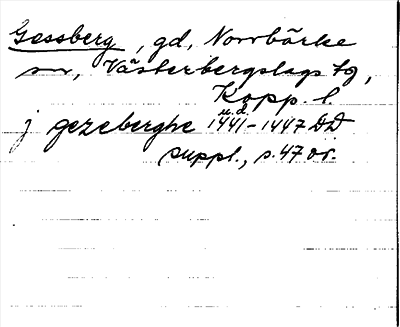 Gessberg, gd, Norrbärke
sn, Västerbergslags tg,
Kopp. l.
j gezeberghe u.d. 1441-1447 DD
suppl., s. 47 or.